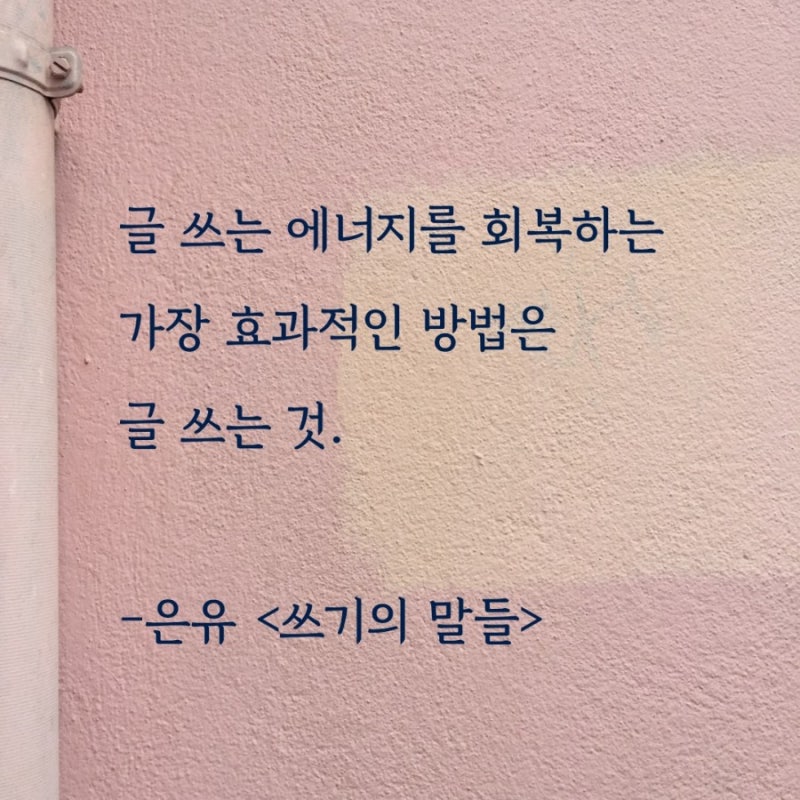 글 쓰는 에너지를 회복하는
가장 효과적인 방법은
글 쓰는 것.
-은유 <쓰기의 말들>